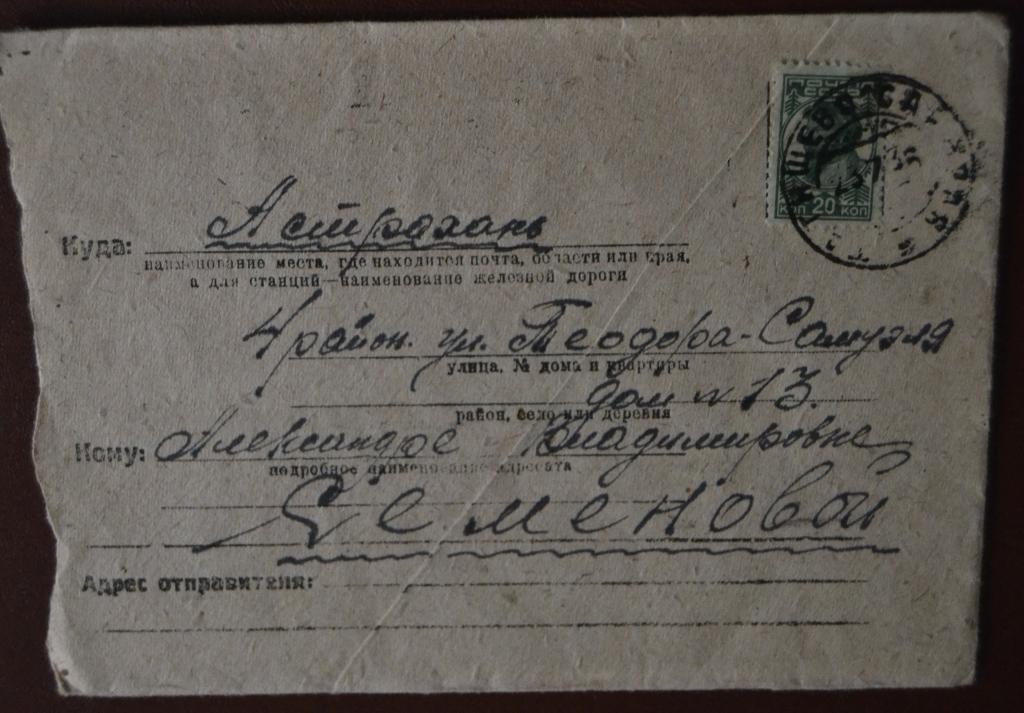 ПОЧТА
КОП 20 КОП
Куда: Астрахань
наименование места, где находится почта, области или края,
а для станций—наименование железной дороги
4 район. ул. Теодора-Самуэля
улица, № дома и квартиры
дом № 13.
район, село или деревня
Кому: Александре Владимировне
подробное наименование адресата
Семеновой
Адрес отправителя: